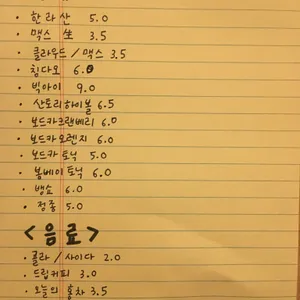 · 한라산 5.0
· 맥스 生 3.5
· 클라우드 / 맥스 3.5
· 칭다오 6.0
· 빅아이 9.0
· 산토리하이볼 6.5
· 보드카크랜베리 6.0
· 보드카오렌지 6.0
· 보드카토닉 5.0
· 봄베이토닉 6.0
· 뱅쇼 6.0
· 정종 5.0
<음료>
· 콜라 / 사이다 2.0
· 드립커피 3.0
· 오늘의 홍차 3.5